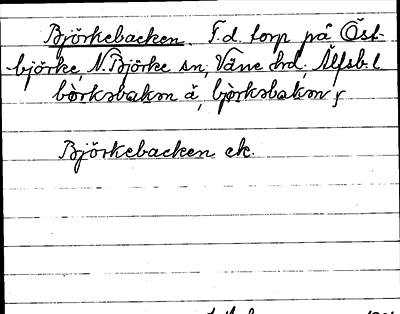 Björkebacken. F.d. torp på Öst-
björke, N. Björke sn, Väne hd, Älfsb. l
bö̀rksbakən ä, bjö̀rkəbakən f
Björkebacken ek.